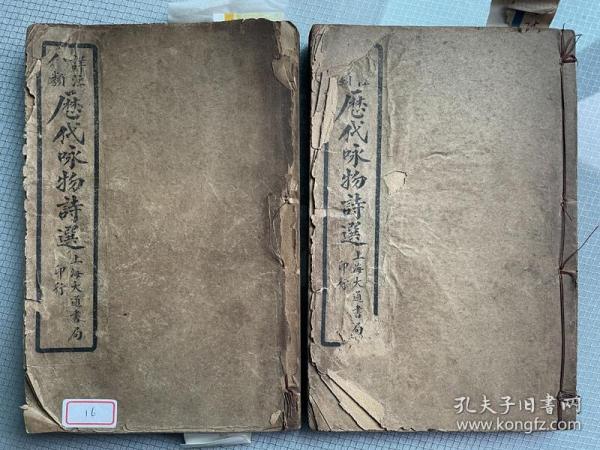 詳註
分類
歷代咏物詩選
上海大通書局
印行
16
註
類
歷代咏物詩選
上海大通書局
印行
孔夫子旧书网